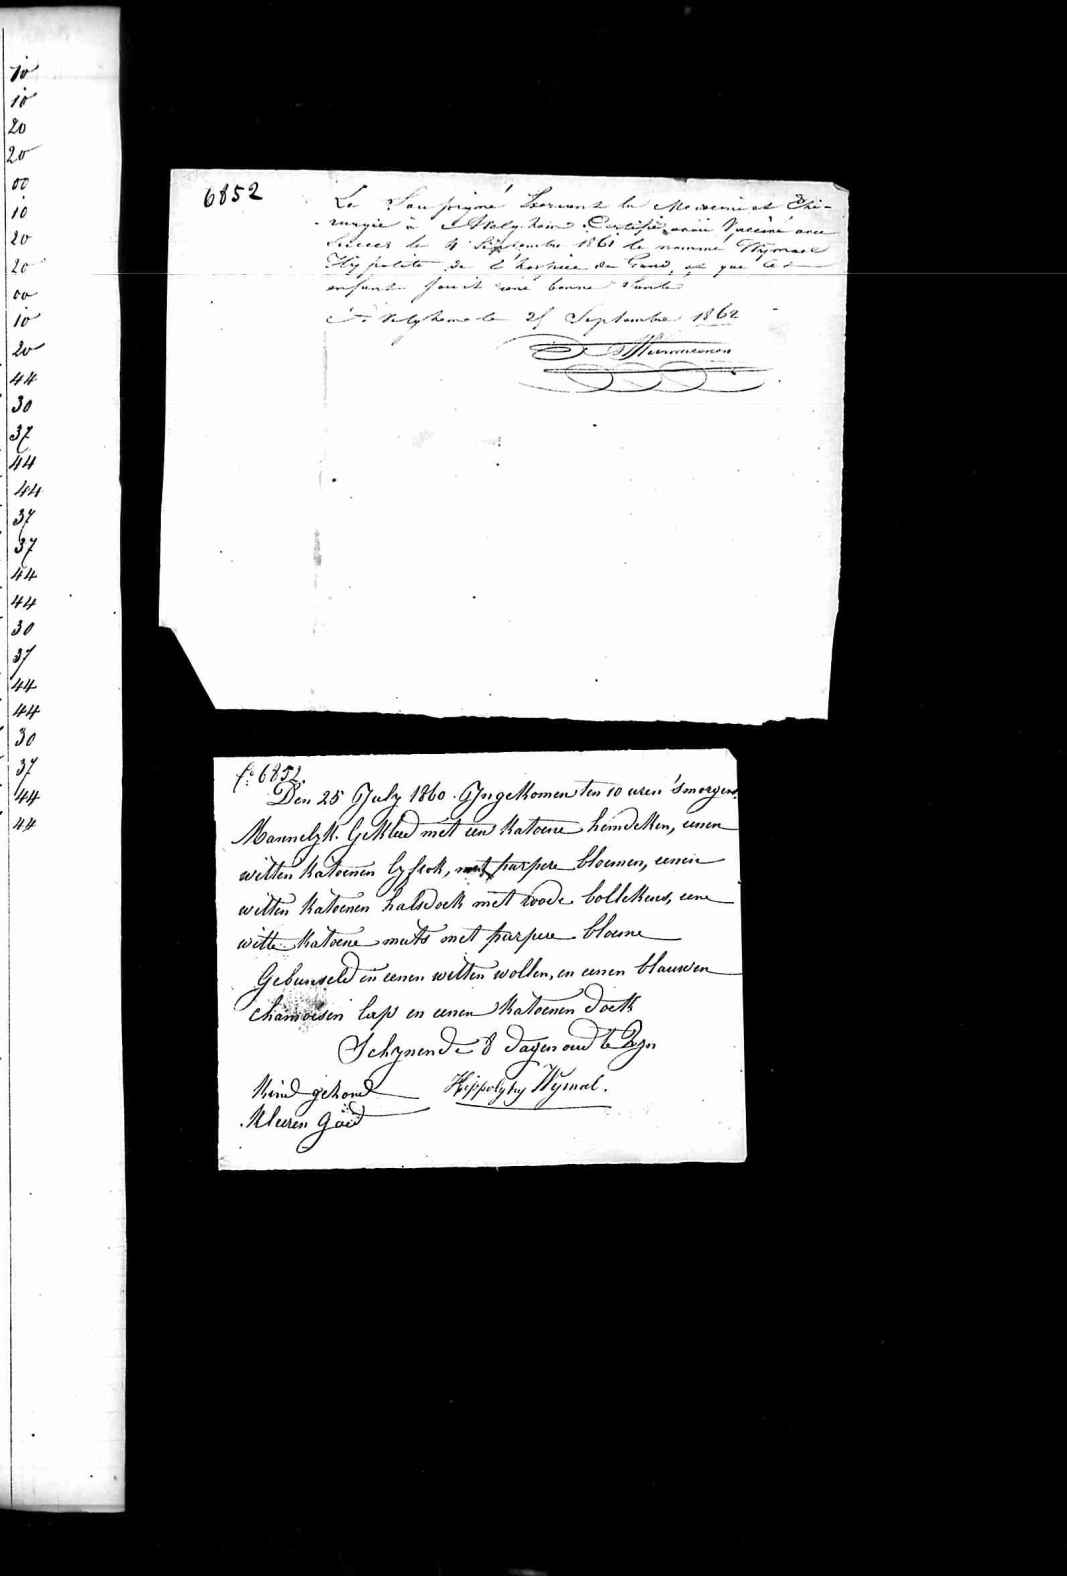 10
10
20
20
00
10
20
20
00
10
20
44
30
37
44
44
37
37
44
44
30
37
44
44
30
37
44
44
6852
Le Sousigné Exercent la Medecine et Chi-
rurgie à Certifie avoir Vacciné avec
succes le 4 Septembre 1861 le nommé Wymael
Hypolite de l'hospice de Gand, et que
enfant jouit une bonne Santé
le 25 Septembre 1862
f° 6852
Den 25 July 1860. Ingekomen ten 10 uren 'smorgens
Mannelyk. Gekleed met een katoene hemdeken, eenen
witten katoenen lyfrok, met purpere bloemen, eenen
witten katoenen halsdoek met roode bollekens, eene
witte katoene muts met purpere bloeme
Gebunseld in eenen witten wollen, en eenen blauwen
chamoisen lap en eenen katoenen doek
Schynende 8 dagen oud te Zyn
Kind gezond Hippolyty Wymael.
Kleeren goed